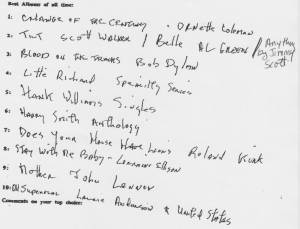 Best Albums of all time:
1: CHANGE OF THE CENTURY - ORNETTE Coleman
2: TILT SCOTT WALKER / Belle AL GREEN / Anything by Jimmy Scott
3: BLOOD ON THE TRACKS Bob Dylan
4: Little Richard Specialty Series
5: Hank Williams Singles
6: HARRY Smith Anthology
7: Does Your House Have Lions Roland Kirk
8: STAY WITH ME Baby - Lorraine Ellison
9: Mother John Lennon
10: Oh Superman Laurie Anderson & United States
Comments on your top choice: